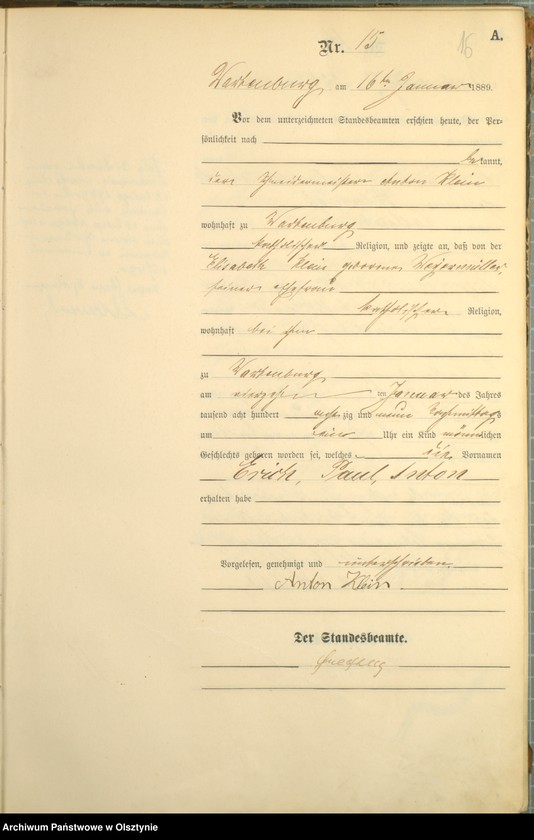 A.
16
Nr. 15
Wartenburg am 16ten Januar 1889.
Vor dem unterzeichneten Standesbeamten erschien heute, der Per-
sönlichkeit nach
bekannt,
der Schneidermeister Anton Klein
wohnhaft zu Wartenburg
katholischer Religion, und zeigte an, daß von der
Elisabeth Klein geborenen
seiner Ehefrau
katholischer Religion,
wohnhaft bei ihm
zu Wartenburg
am vierzehn ten im Januar des Jahres
tausend acht hundert acht zig und neun
um ein Uhr ein Kind männlichen
Geschlechts geboren worden sei, welches die Vornamen
Erich, Paul, Anton
erhalten habe
Vorgelesen, genehmigt und unterschrieben.
Anton Klein
Der Standesbeamte.
Archiwum Państwowe w Olsztynie